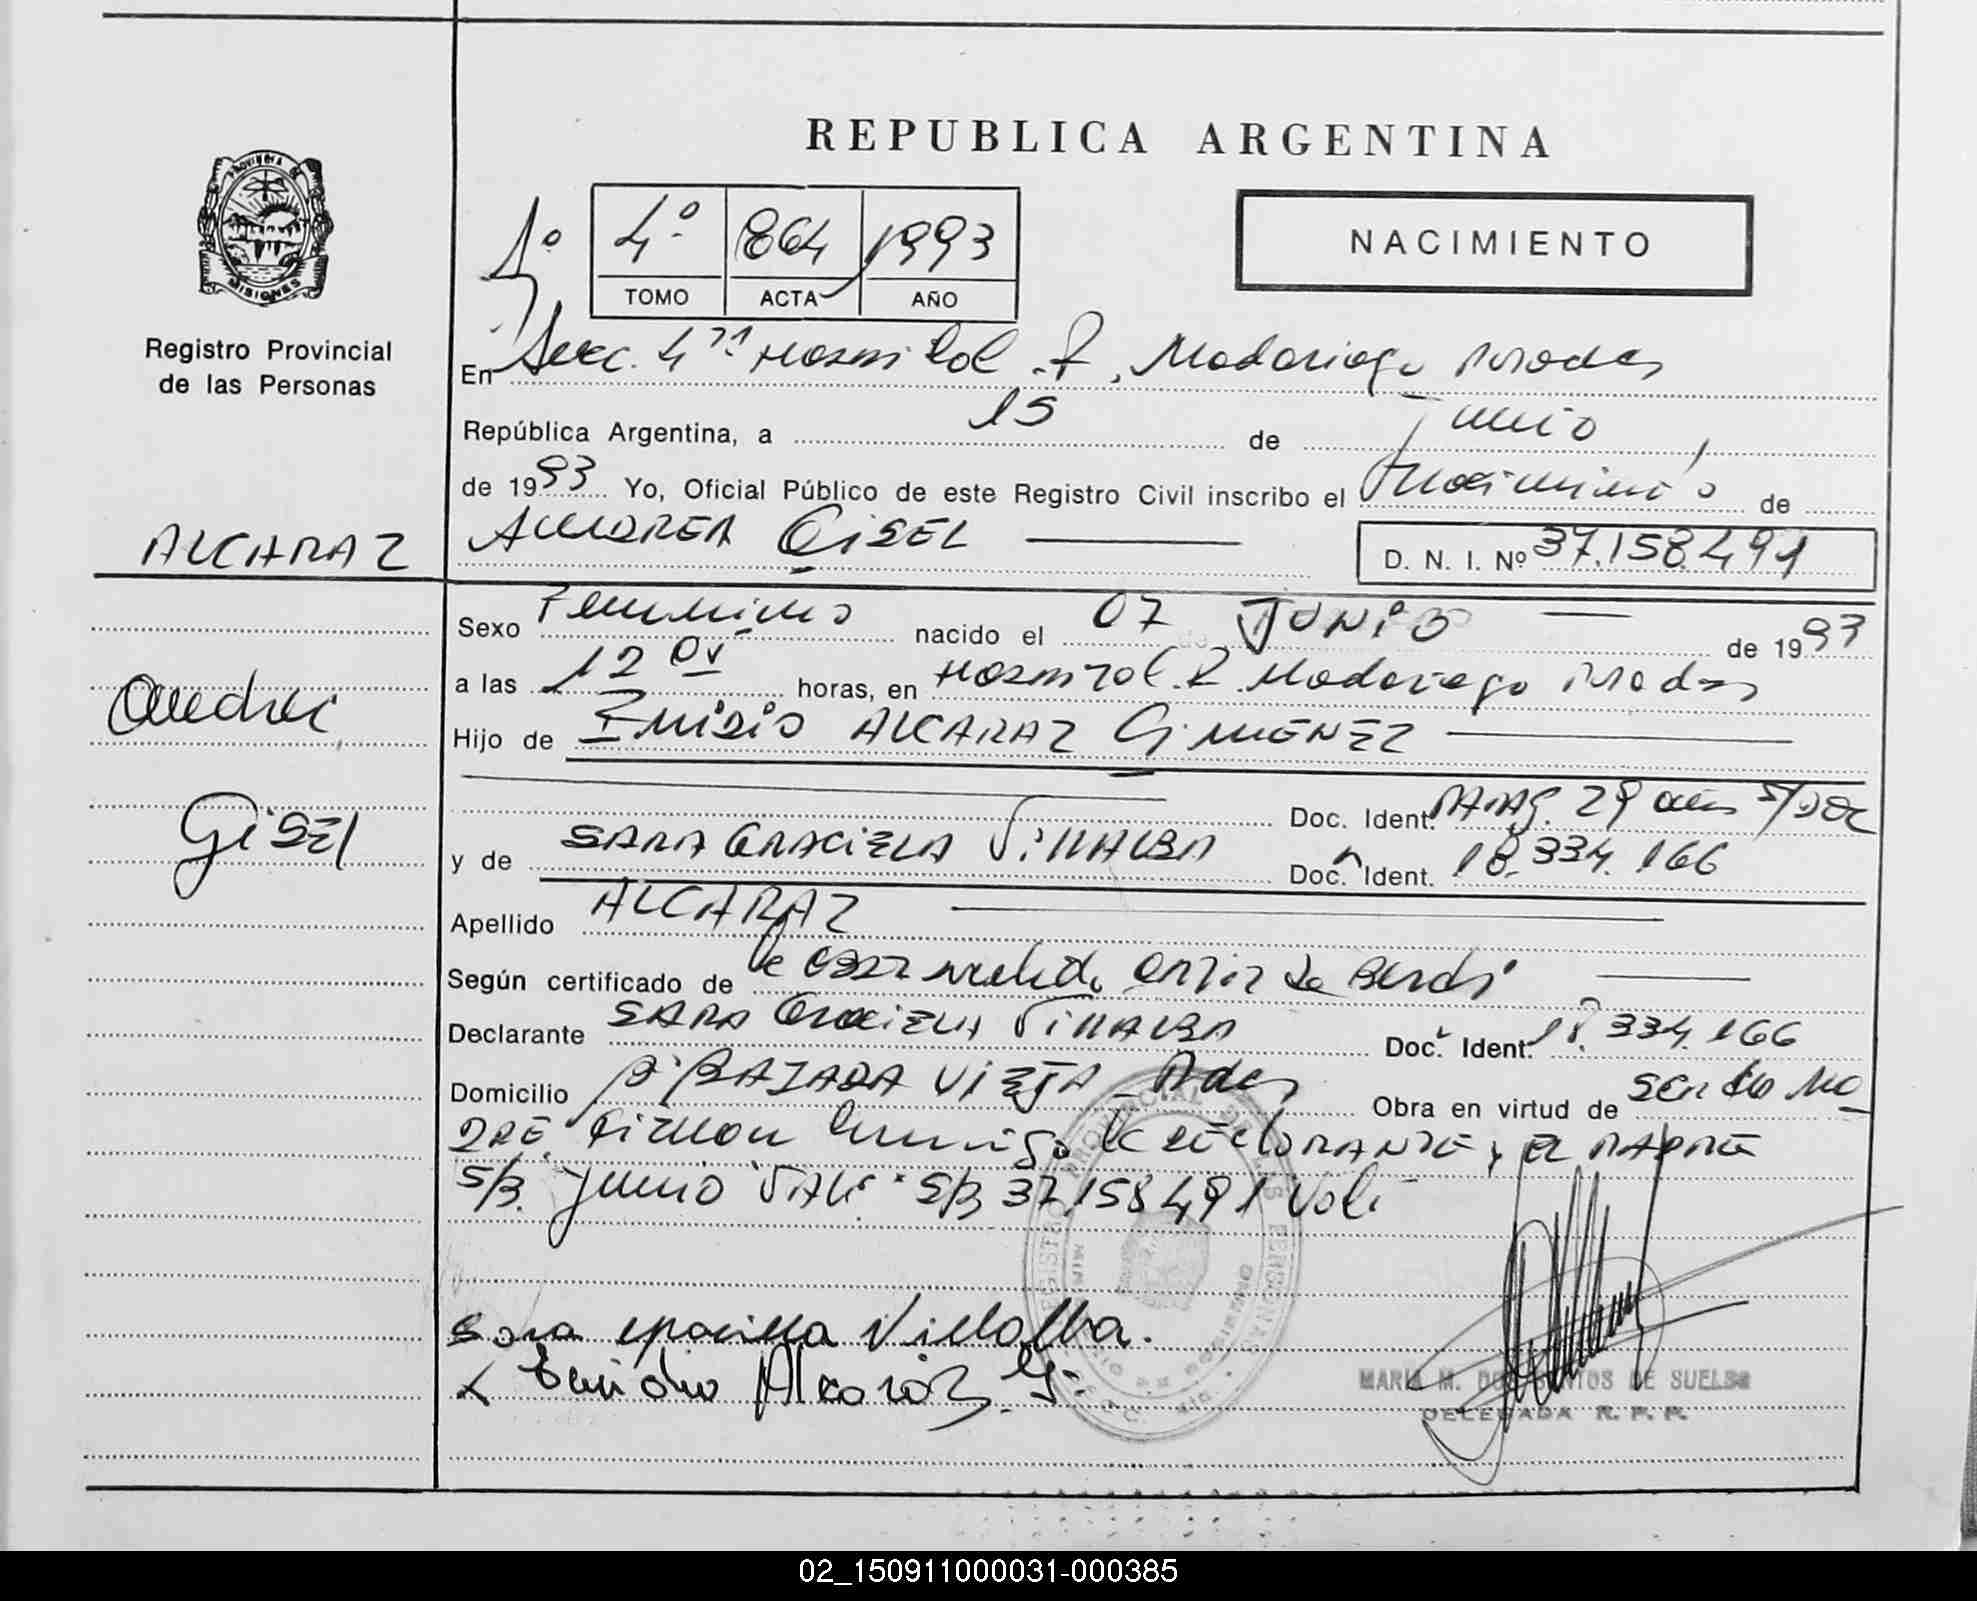 REPUBLICA ARGENTINA
PROVINCIA DE
MISIONES
Registro Provincial
de las Personas
1º 4º 864 1993
TOMO ACTA AÑO
NACIMIENTO
En Secc. 4ta Hospital R. Madariaga Posadas
República Argentina, a 15 de Junio
de 1993 Yo, Oficial Público de este Registro Civil inscribo el Nacimiento de
ALCARAZ
ANDREA GISEL
D. N. I. Nº 37.158.491
Sexo Femenino nacido el 07 JUNIO de 1993
a las 12 horas, en Hospital R. Madariaga Posadas
Andrea
Hijo de EMIDIO ALCARAZ GIMENEZ
Doc. Ident. PARAG. 29 años S/Doc
Gisel
y de SARA GRACIELA VILLALBA Doc. Ident. 18.334.166
Apellido ALCARAZ
Según certificado de
Declarante SARA Graciela VILLALBA Doc. Ident. 18.334.166
Domicilio Bº BAJADA VIEJA Pdas Obra en virtud de ser la Ma
DRE. Firman conmigo la declarante y el PADRE
S/B. Junio VALE S/B 37.158.491 Vale
Sara graciela Villalba.
x Emidio Alcaraz G.
REGISTRO PROVINCIAL DE LAS PERSONAS
MARIA M. DOS SANTOS DE SUELSA
DELEGADA R. P. P.
02_150911000031-000385